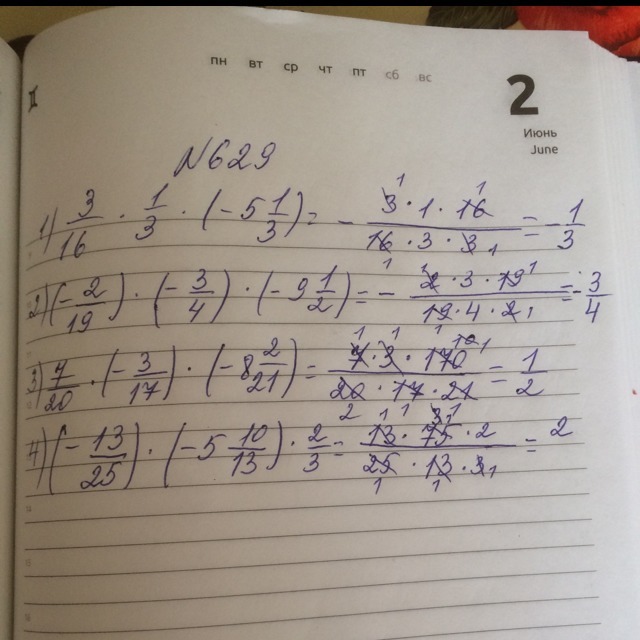 пн вт ср чт пт сб вс
2
Июнь
June
№629
1) 3/16 · 1/3 · (-5 1/3) = - 3·1·16/16·3·3 = -1/3
2) (-2/19) · (-3/4) · (-9 1/2) = - 2·3·19/19·4·2 = -3/4
3) 7/20 · (-3/17) · (-8 2/21) = 7·3·170/20·17·21 = 1/2
4) (-13/25) · (-5 10/13) · 2/3 = 13·75·2/25·13·3 = 2